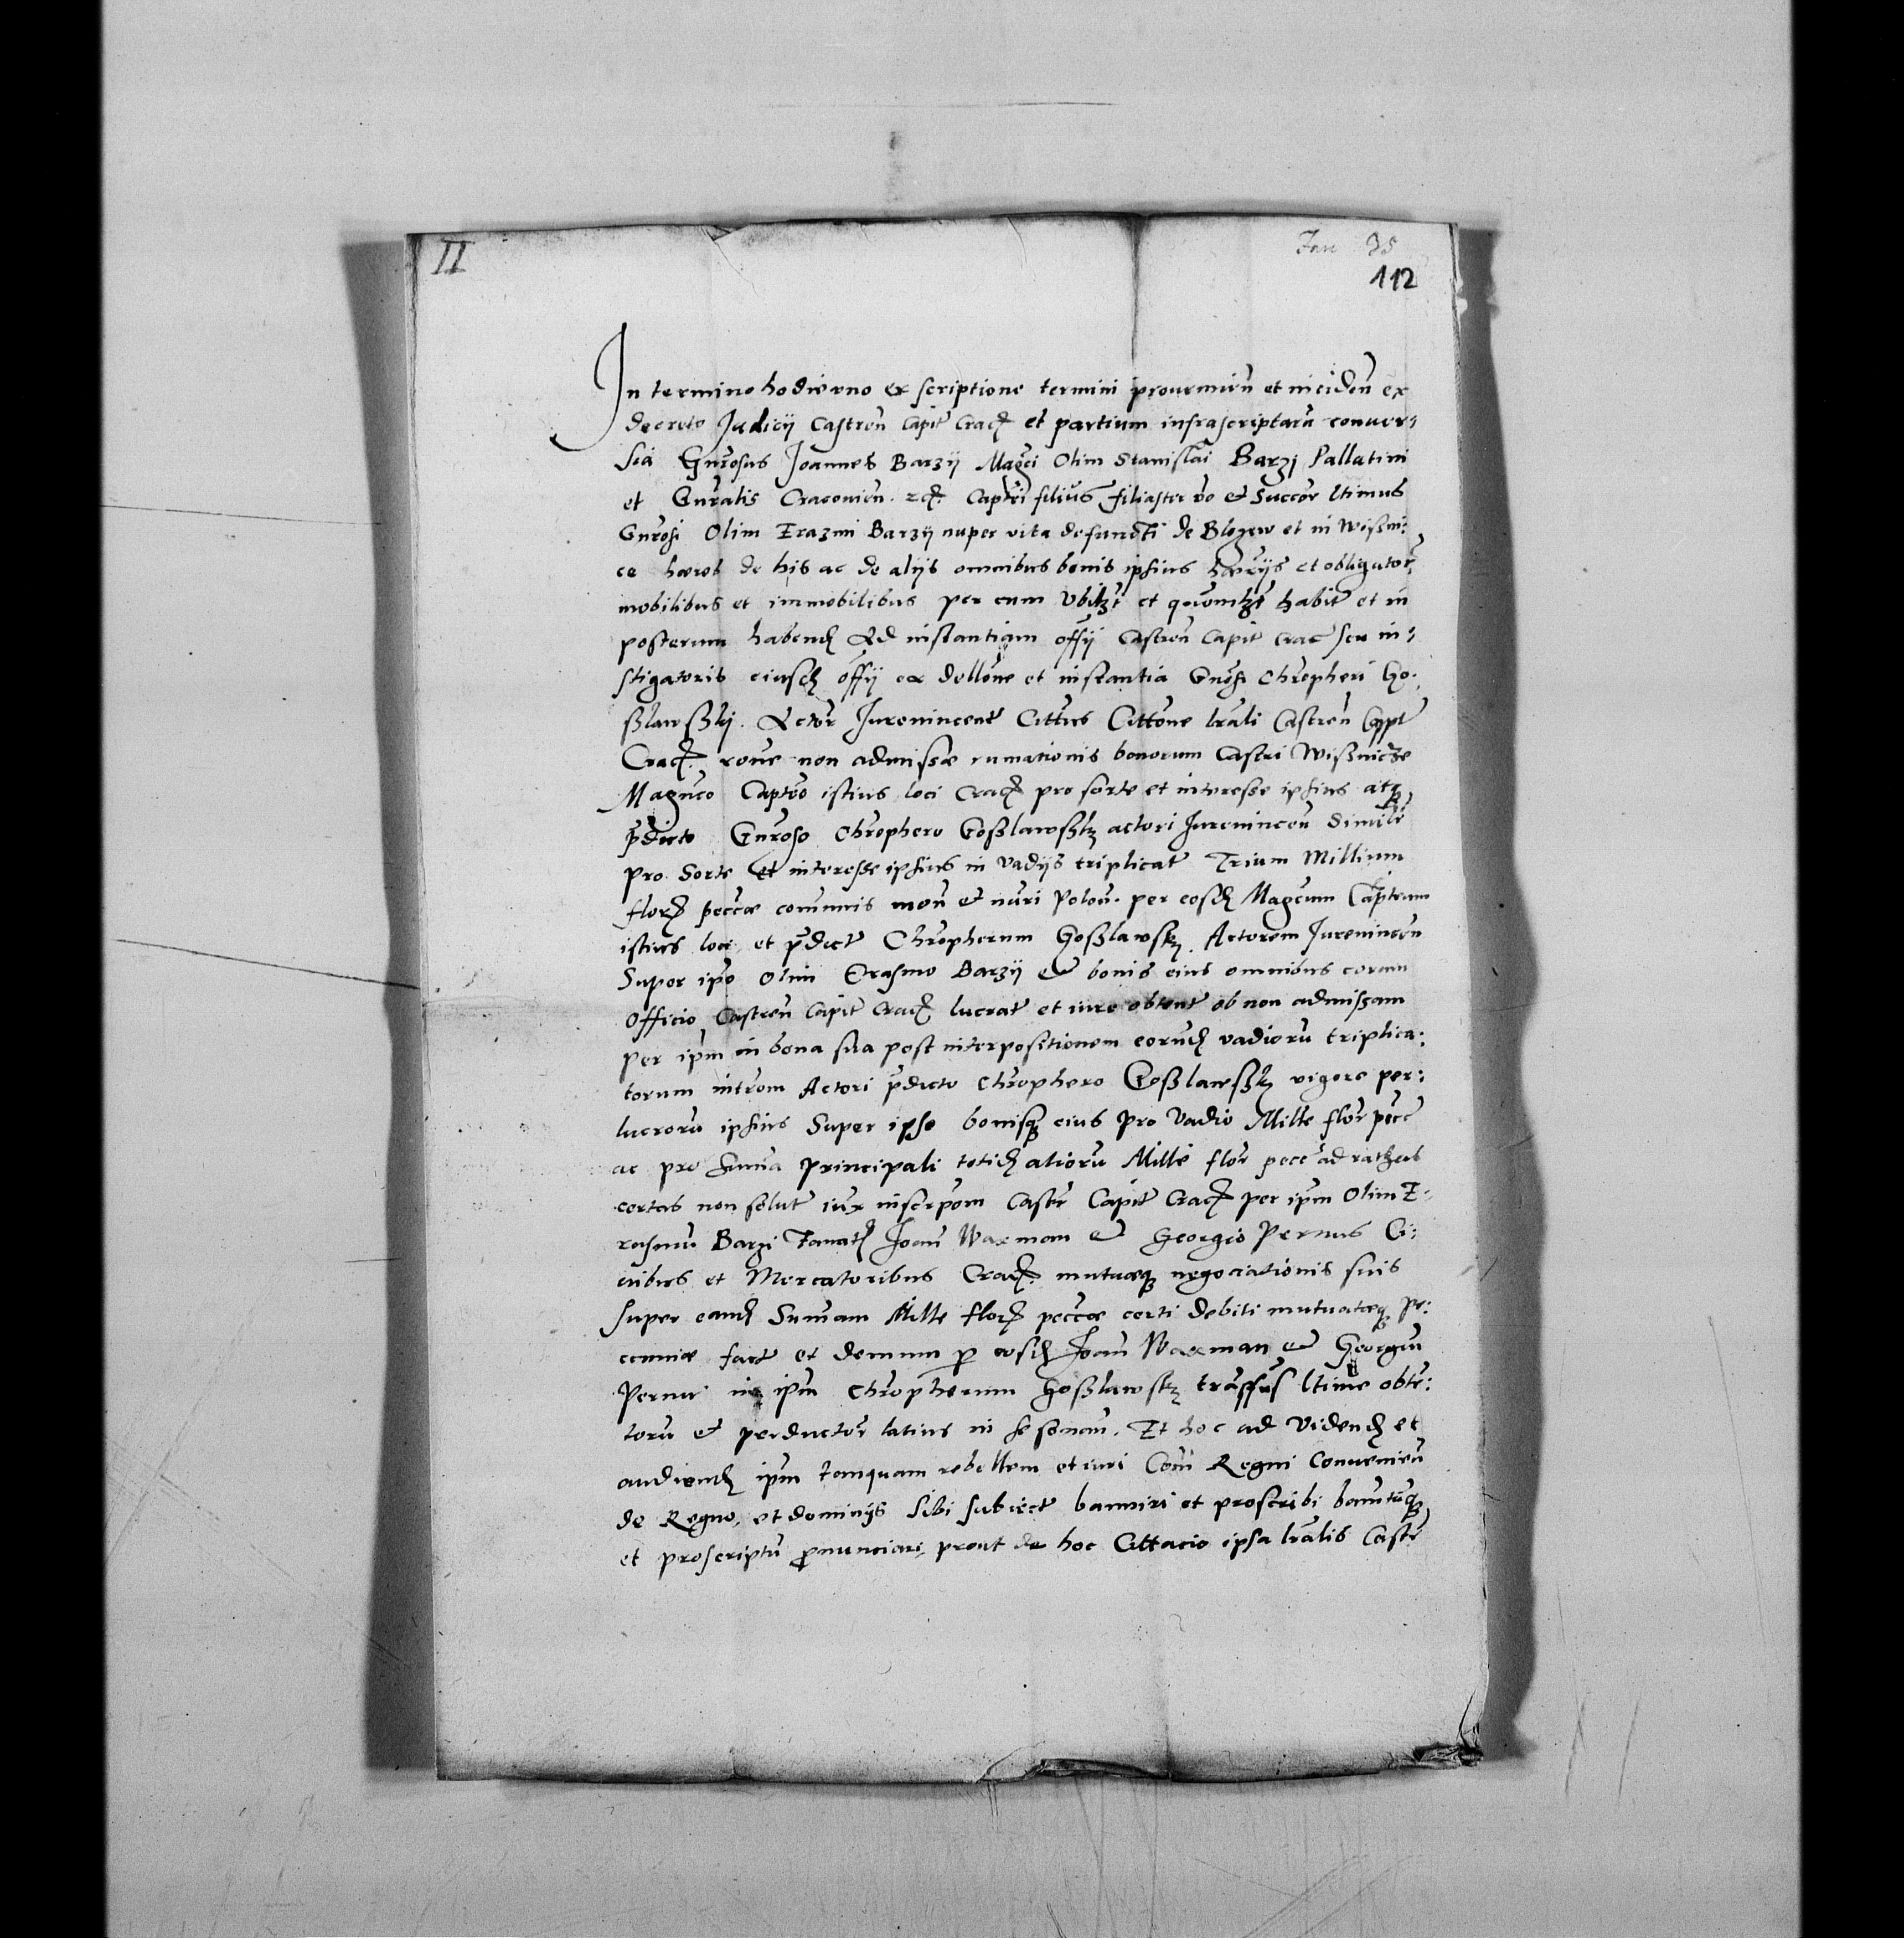 II
Fau 35
112
In termino hodierno ex scriptione termini prouenieñ et incideñ ex
decreto Judicij Castreñ Capit Crac et partium infrascriptarũ conuer:
sia Gnrosus Joannes Barzij Magci Olim Stanislai Barzj Pallatini
et Gnralis Cracouieñ. Captei filius filiaster vo et Succor ltimus
Gnrosi Olim Erazmi Barzij nuper vita defuncti de Blozew et in Wißni:
ce hæres de his ac de alijs omnibus bonis ipsius hærijs et obligator
mobilibus et immobilibus per eum vbilzt et quomlzt habit et in
posterum habend Ad instantiam offij Castreñ Capit Crac seu in:
stigatoris eiusd offij ex dellone et instantia Gnrosi Chrepheri Go:
ßlawßkj. Actor Jurenincent Cittus Cittone lrali Castreñ Cappt
Crac. rone non admissæ rumationis bonorum Castri Wißnicze
Magnco Capteo istius loci Crac pro sorte et interesse ipsius atq
pdicto Gnroso Chrophero Goßlawßkj actori Jurenincen Simili
pro Sorte et interesse ipsius in vadijs triplicat Trium Millium
flor peccæ comunis moñ et nũri Poloñ. per eosd Magcum Capteum
istius loci et pdict Chropherum Goßlawskj Actorem Jureninceñ
Super ipo Olim Erasmo Barzij et bonis eius omnibus coram
Officio Castreñ Capit Crac lucrat et iure obtent ob non admissam
per ipm in bona sua post interpositionem eorund vadiorũ triplica:
torum introm Actori pdicto Chrophero Goßlawßkj vigore per:
lucrorũ ipsius Super ipso bonisq eius pro Vadio Mille flor pecc
ac pro suma principali totid aliorũ Mille flor pecc ad rathas
certas non solut iux inscrpom Castr Capit Crac per ipm Olim E:
rasmũ Barzi Famat Joañ Waxman et Georgio Pernus Ci:
uibus et Mercatoribus Crac. mutuæq negociationis suis
super eand Sumam Mille flor peccæ certi debiti mutuatæq pe:
cuniæ fact et demum p eosd Joañ Waxman et Georgiũ
Pernus in ipm Chropherum Goßlawskj transfus ltime obte:
torũ et perductor latius in se sonañ. Et hoc ad videnđ et
audienđ ipm tanquam rebellem et iuri Coñi Regni Conuenieñ
de Regno, et dominijs sibi subiect banniri et proscribi banitũq
et proscriptũ pnunciari prout de hoc Cittacio ipsa lralis Castr